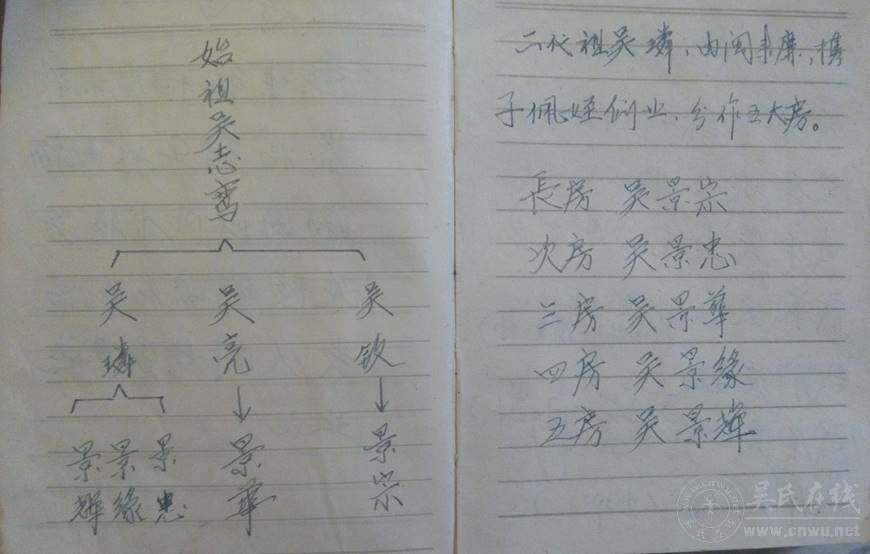 始祖吴志鸾
吴璘 吴亮 吴钦
景輝 景緣 景忠 景華 景宗
二代祖吴璘,由闽来廉,携
子佩姪创业,分作五大房。
長房 吴景宗
次房 吴景忠
三房 吴景華
四房 吴景緣
五房 吴景輝
吴氏在线
www.cnwu.net